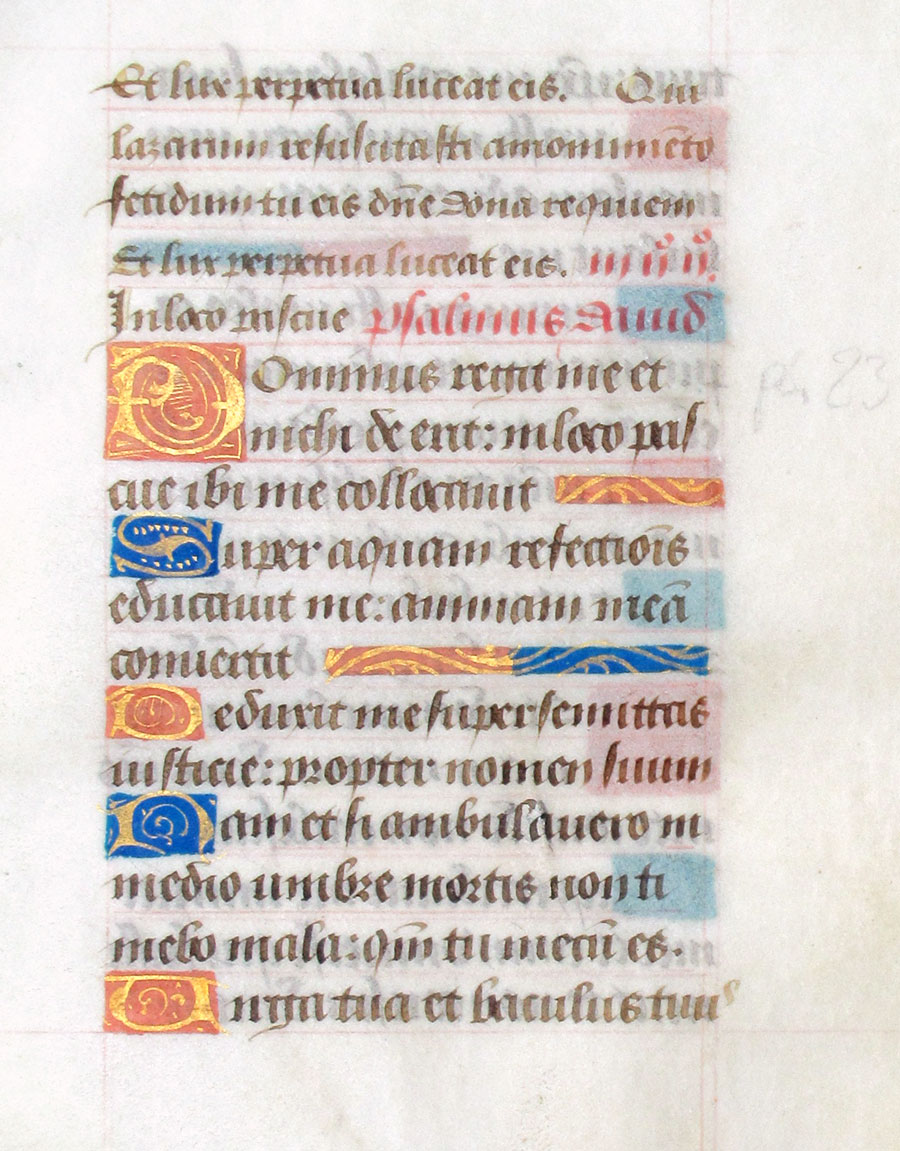 Et lux perpetua luceat eis. Qui
lazarum resuscitasti a monumēto
fetidum tu eis dn̄e dona requiem
Et lux perpetua luceat eis.
In loco pascue psalmus dauid
Dominus regit me et
nichi de erit: in loco pas
cue ibi me collocauit
Super aquam refectiōis
educauit me: animam meā
conuertit
Deduxit me super semittas
iusticie: propter nomen suum
Nam et si ambulauero in
medio umbre mortis non ti
mebo mala: qm̄ tu mecū es.
Uirga tua et baculus tuus
ps. 23